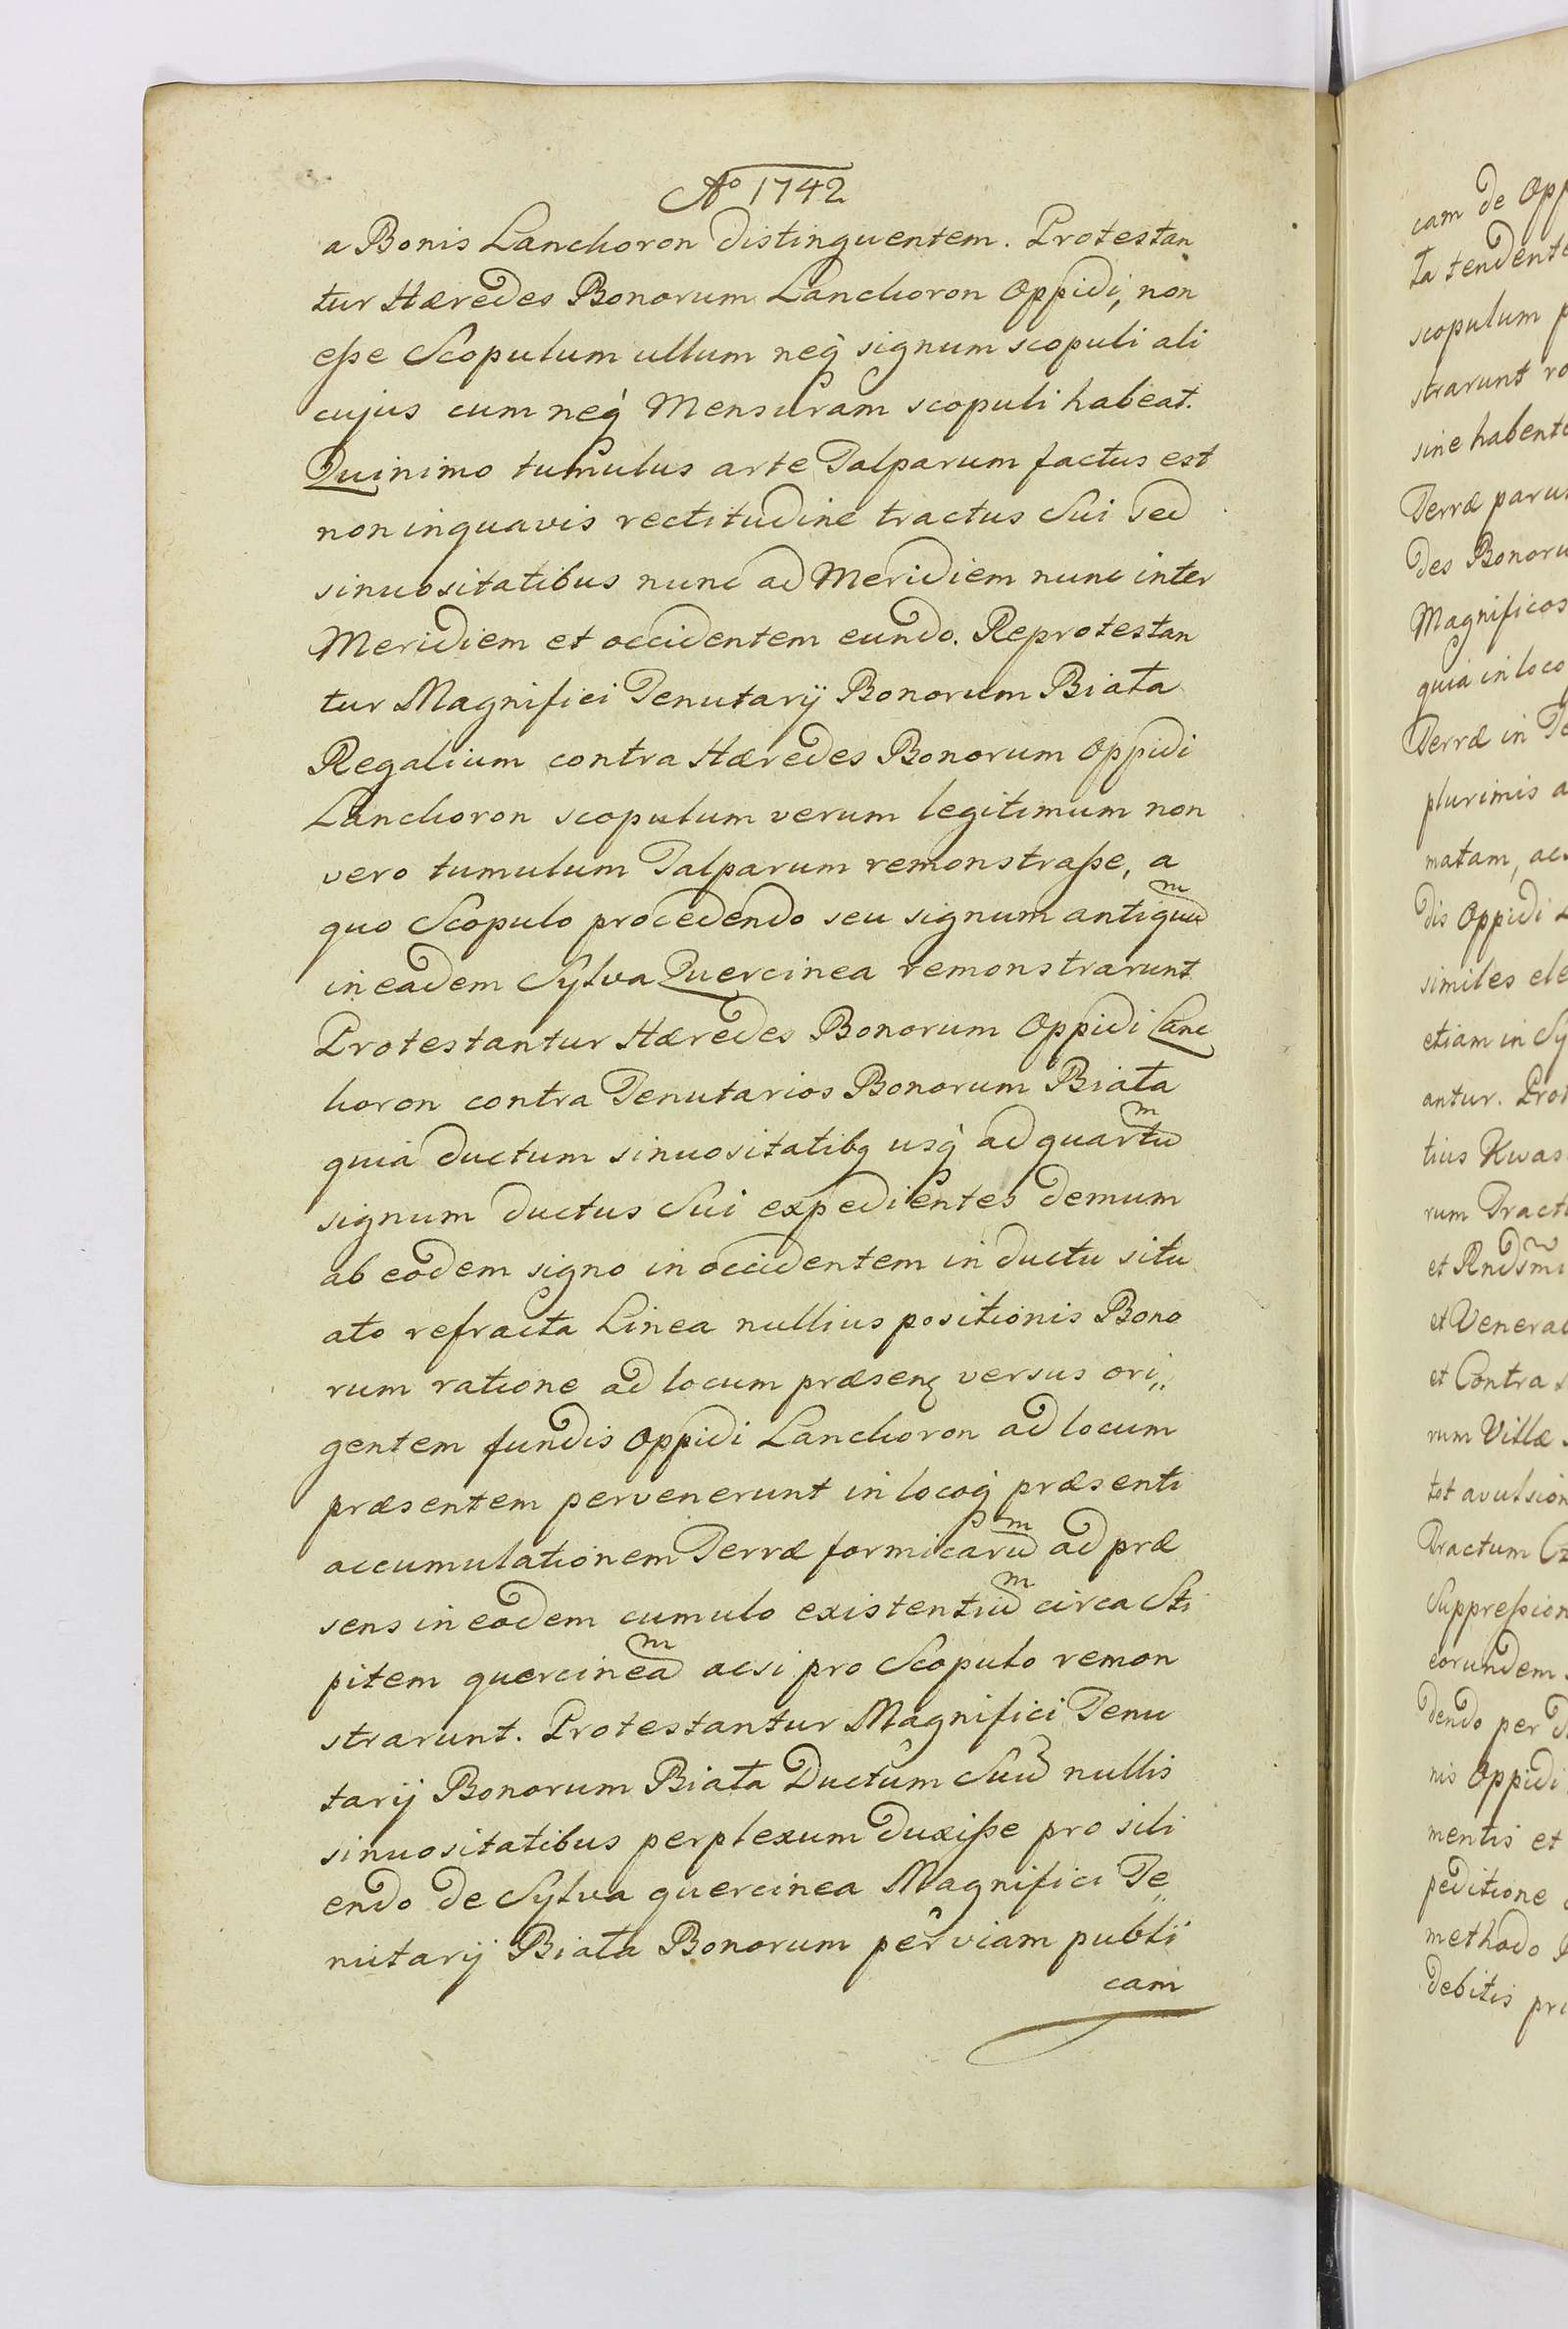 Ao 1742
a Bonis Lanckoron distinguentem. Protestan
tur Hæredes Bonorum Lanckoron Oppidi, non
eße Scopulum ullum neq̀ signum scopuli ali
cujus cum neq̀ Mensuram scopuli habeat.
Quinimo tumulus arte Talparum factus est
non inquavis rectitudine tractus Sui sed
sinuositatibus nunc ad Meridiem nunc inter
Meridiem et occidentem eundo. Reprotestan
tur Magnifici Tenutarij Bonorum Biała
Regalium contra Hæredes Bonorum Oppidi
Lanckoron scopulum verum legitimum non
vero tumulum Talparum remonstraße, a
quo Scopulo procedendo seu signum antiquu͞m
in eadem Sylva Quercinea remonstrarunt
Protestantur Hæredes Bonorum Oppidi Lanc
koron contra Tenutarios Bonorum Biała
quia ductum sinuositatibq usq̀ ad quartu͞m
signum ductus Sui expedientes demum
ab eodem signo in occidentem in ductu situ
ato refracta Linea nullius positionis Bono
rum ratione ad locum præsenq versus ori„
gentem fundis Oppidi Lanckoron ad locum
præsentem pervenerunt in locoq̀ præsenti
accumulationem Terræ formicaru͞m ad præ
sens in eodem cumulo existentiu͞m circa Sti
pitem quercinea͞m acsi pro Scopulo remon
strarunt. Protestantur Magnifici Tenu
tarij Bonorum Biała Ductum Suu͞ nullis
sinuositatibus perplexum duxiße pro sili
endo de Sylva quercinea Magnifici Te„
nutarij Biała Bonorum per viam publi
cam
cam de Opp
ta tendente
scopulum p
strarunt ro
sine habente
Terræ paru
des Bonoru
Magnificos
quia in loco
Terræ in Te
plurimis a
matam, acs
dis Oppidi L
similes ele
etiam in Sy
antur. Prot
tius Kwas
rum Tract
et Rndsmi
et Venerab
et Contra s
rum Villæ s
tot avulsion
Tractum Cz
Suppreßion
eorundem
dendo per
nis Oppidi
mentis et
peditione
methodo
debitis pr